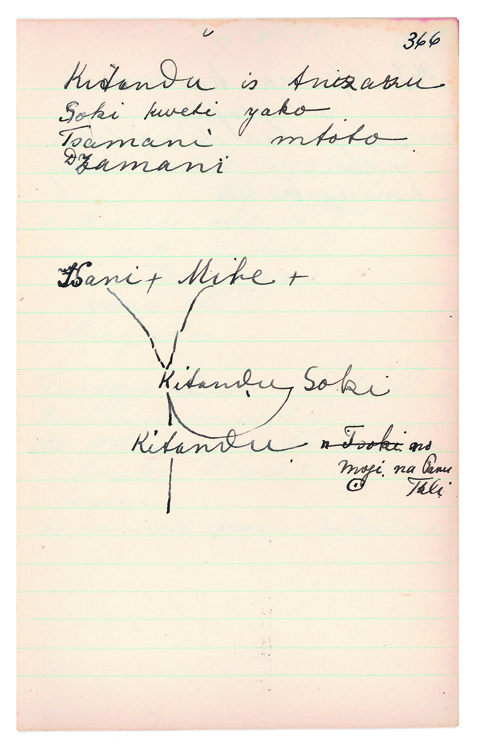 366
Kitandu is
Soki kweti yako
Tsamani mtoto
Dzamani
Tsani + Mike +
Kitandu Soki
Kitandu n Tsoki no
mogi na
Tali